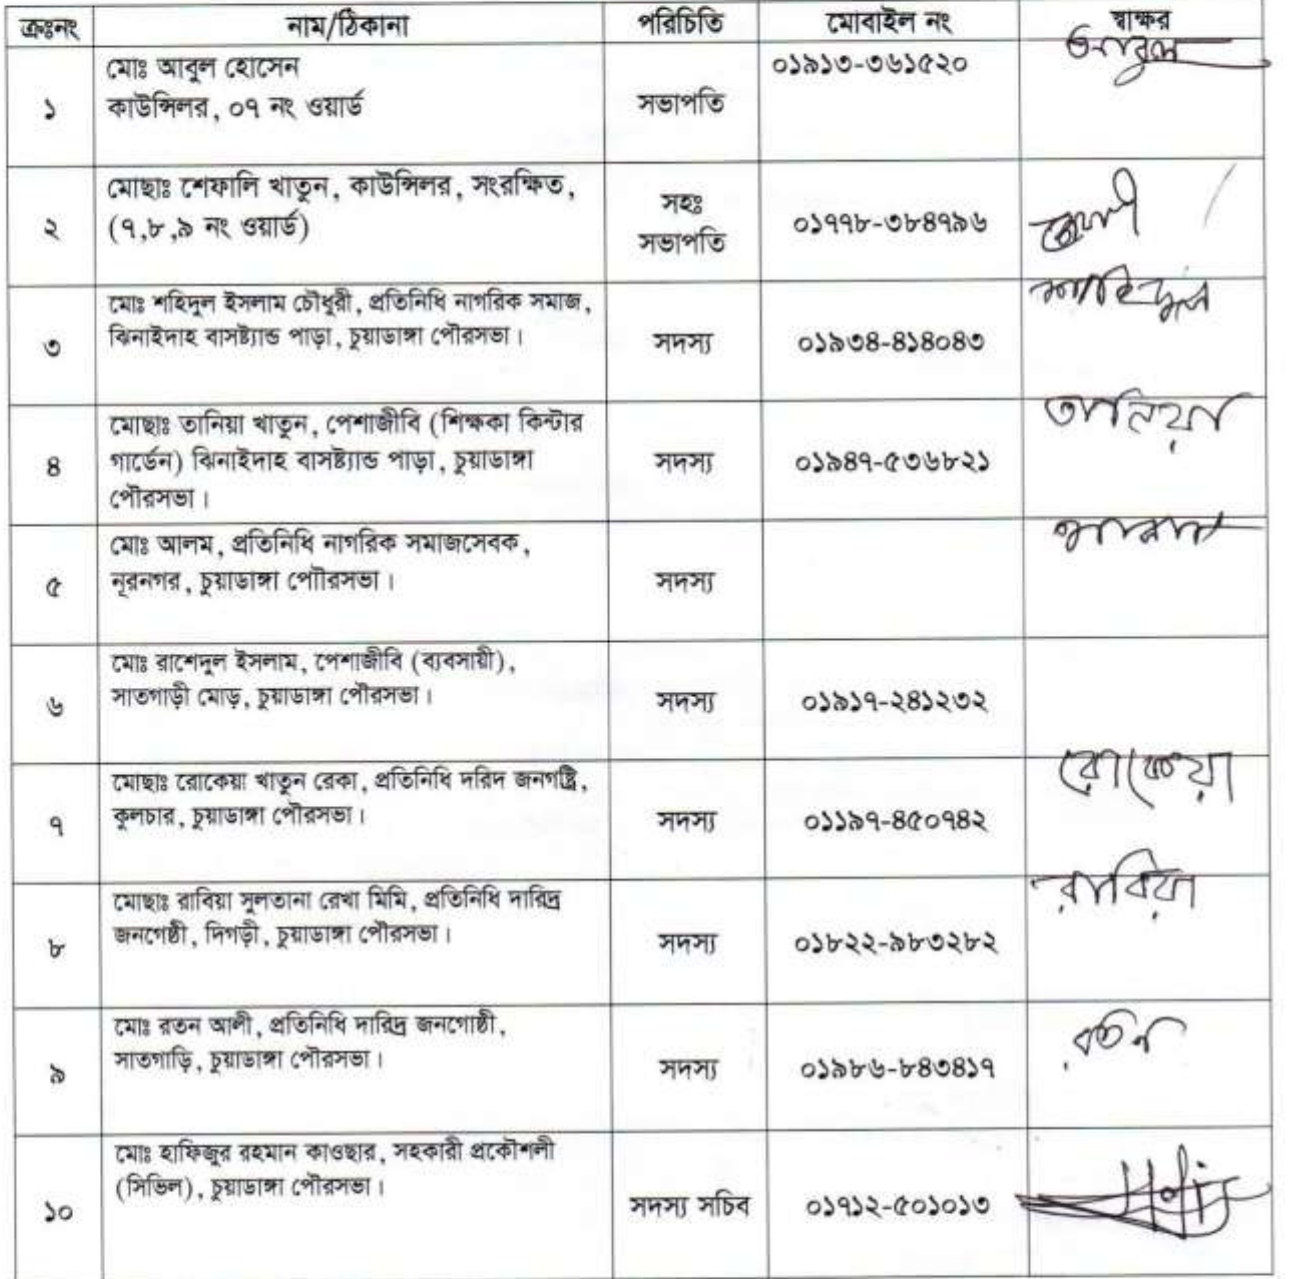 ক্রঃনং নাম/ঠিকানা পরিচিতি মোবাইল নং স্বাক্ষর
মোঃ আবুল হোসেন ০১৯১৩-৩৬১৫২০ আবুল
১ কাউন্সিলর, ০৭ নং ওয়ার্ড সভাপতি
মোছাঃ শেফালি খাতুন, কাউন্সিলর, সংরক্ষিত, সহঃ
২ (৭,৮,৯ নং ওয়ার্ড) সভাপতি ০১৭৭৮-৩৮৪৭৯৬
মোঃ শহিদুল ইসলাম চৌধুরী, প্রতিনিধি নাগরিক সমাজ, শহিদুল
ঝিনাইদাহ বাসষ্ট্যান্ড পাড়া, চুয়াডাঙ্গা পৌরসভা।
৩ সদস্য ০১৯৩৪-৪১৪০৪৩
মোছাঃ তানিয়া খাতুন, পেশাজীবি (শিক্ষকা কিন্টার তানিয়া
৪ গার্ডেন) ঝিনাইদাহ বাসষ্ট্যান্ড পাড়া, চুয়াডাঙ্গা সদস্য ০১৯৪৭-৫৩৬৮২১
পৌরসভা।
মোঃ আলম, প্রতিনিধি নাগরিক সমাজসেবক,
৫ নূরনগর, চুয়াডাঙ্গা পৌারসভা। সদস্য
মোঃ রাশেদুল ইসলাম, পেশাজীবি (ব্যবসায়ী),
৬ সাতগাড়ী মোড়, চুয়াডাঙ্গা পৌরসভা। সদস্য ০১৯১৭-২৪১২৩২
মোছাঃ রোকেয়া খাতুন রেকা, প্রতিনিধি দরিদ জনগষ্ট্রি, রোকেয়া
৭ কুলচার, চুয়াডাঙ্গা পৌরসভা। সদস্য ০১১৯৭-৪৫০৭৪২
মোছাঃ রাবিয়া সুলতানা রেখা মিমি, প্রতিনিধি দারিদ্র রাবিয়া
৮ জনগেষ্ঠী, দিগড়ী, চুয়াডাঙ্গা পৌরসভা। সদস্য ০১৮২২-৯৮৩২৮২
মোঃ রতন আলী, প্রতিনিধি দারিদ্র জনগোষ্ঠী, রতন
৯ সাতগাড়ি, চুয়াডাঙ্গা পৌরসভা। সদস্য ০১৯৮৬-৮৪৩৪১৭
মোঃ হাফিজুর রহমান কাওছার, সহকারী প্রকৌশলী
১০ (সিভিল), চুয়াডাঙ্গা পৌরসভা। সদস্য সচিব ০১৭১২-৫০১০১৩